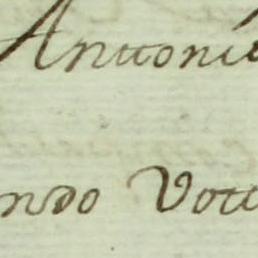 Antoni
ndo Vott